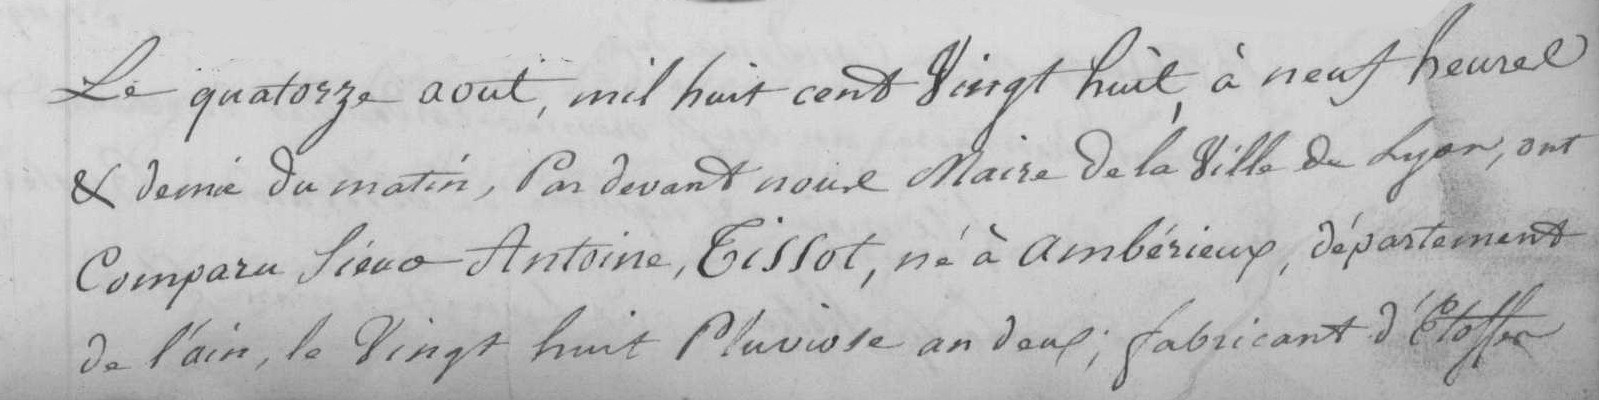 Le quatorze aout, mil huit cent Vingt huit, à neuf heures
& demie du matin, Par devant nous Maire de la Ville de Lyon, ont
Comparu Sieur Antoine, Tissot, né à Ambérieux, département
de l'ain, le Vingt huit Pluviose an deux; fabricant d'Etoffes